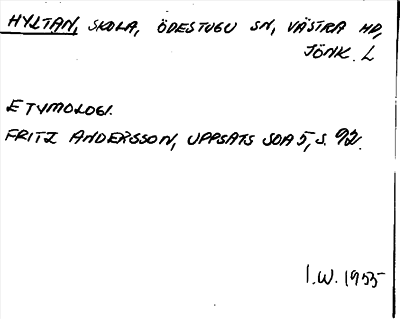 HYLTAN, SKOLA, ÖDESTUGU SN, VÄSTRA HD,
JÖNK. L
ETYMOLOGI.
FRITZ ANDERSSON, UPPSATS SOA 5, S. 92.
I.W. 1955